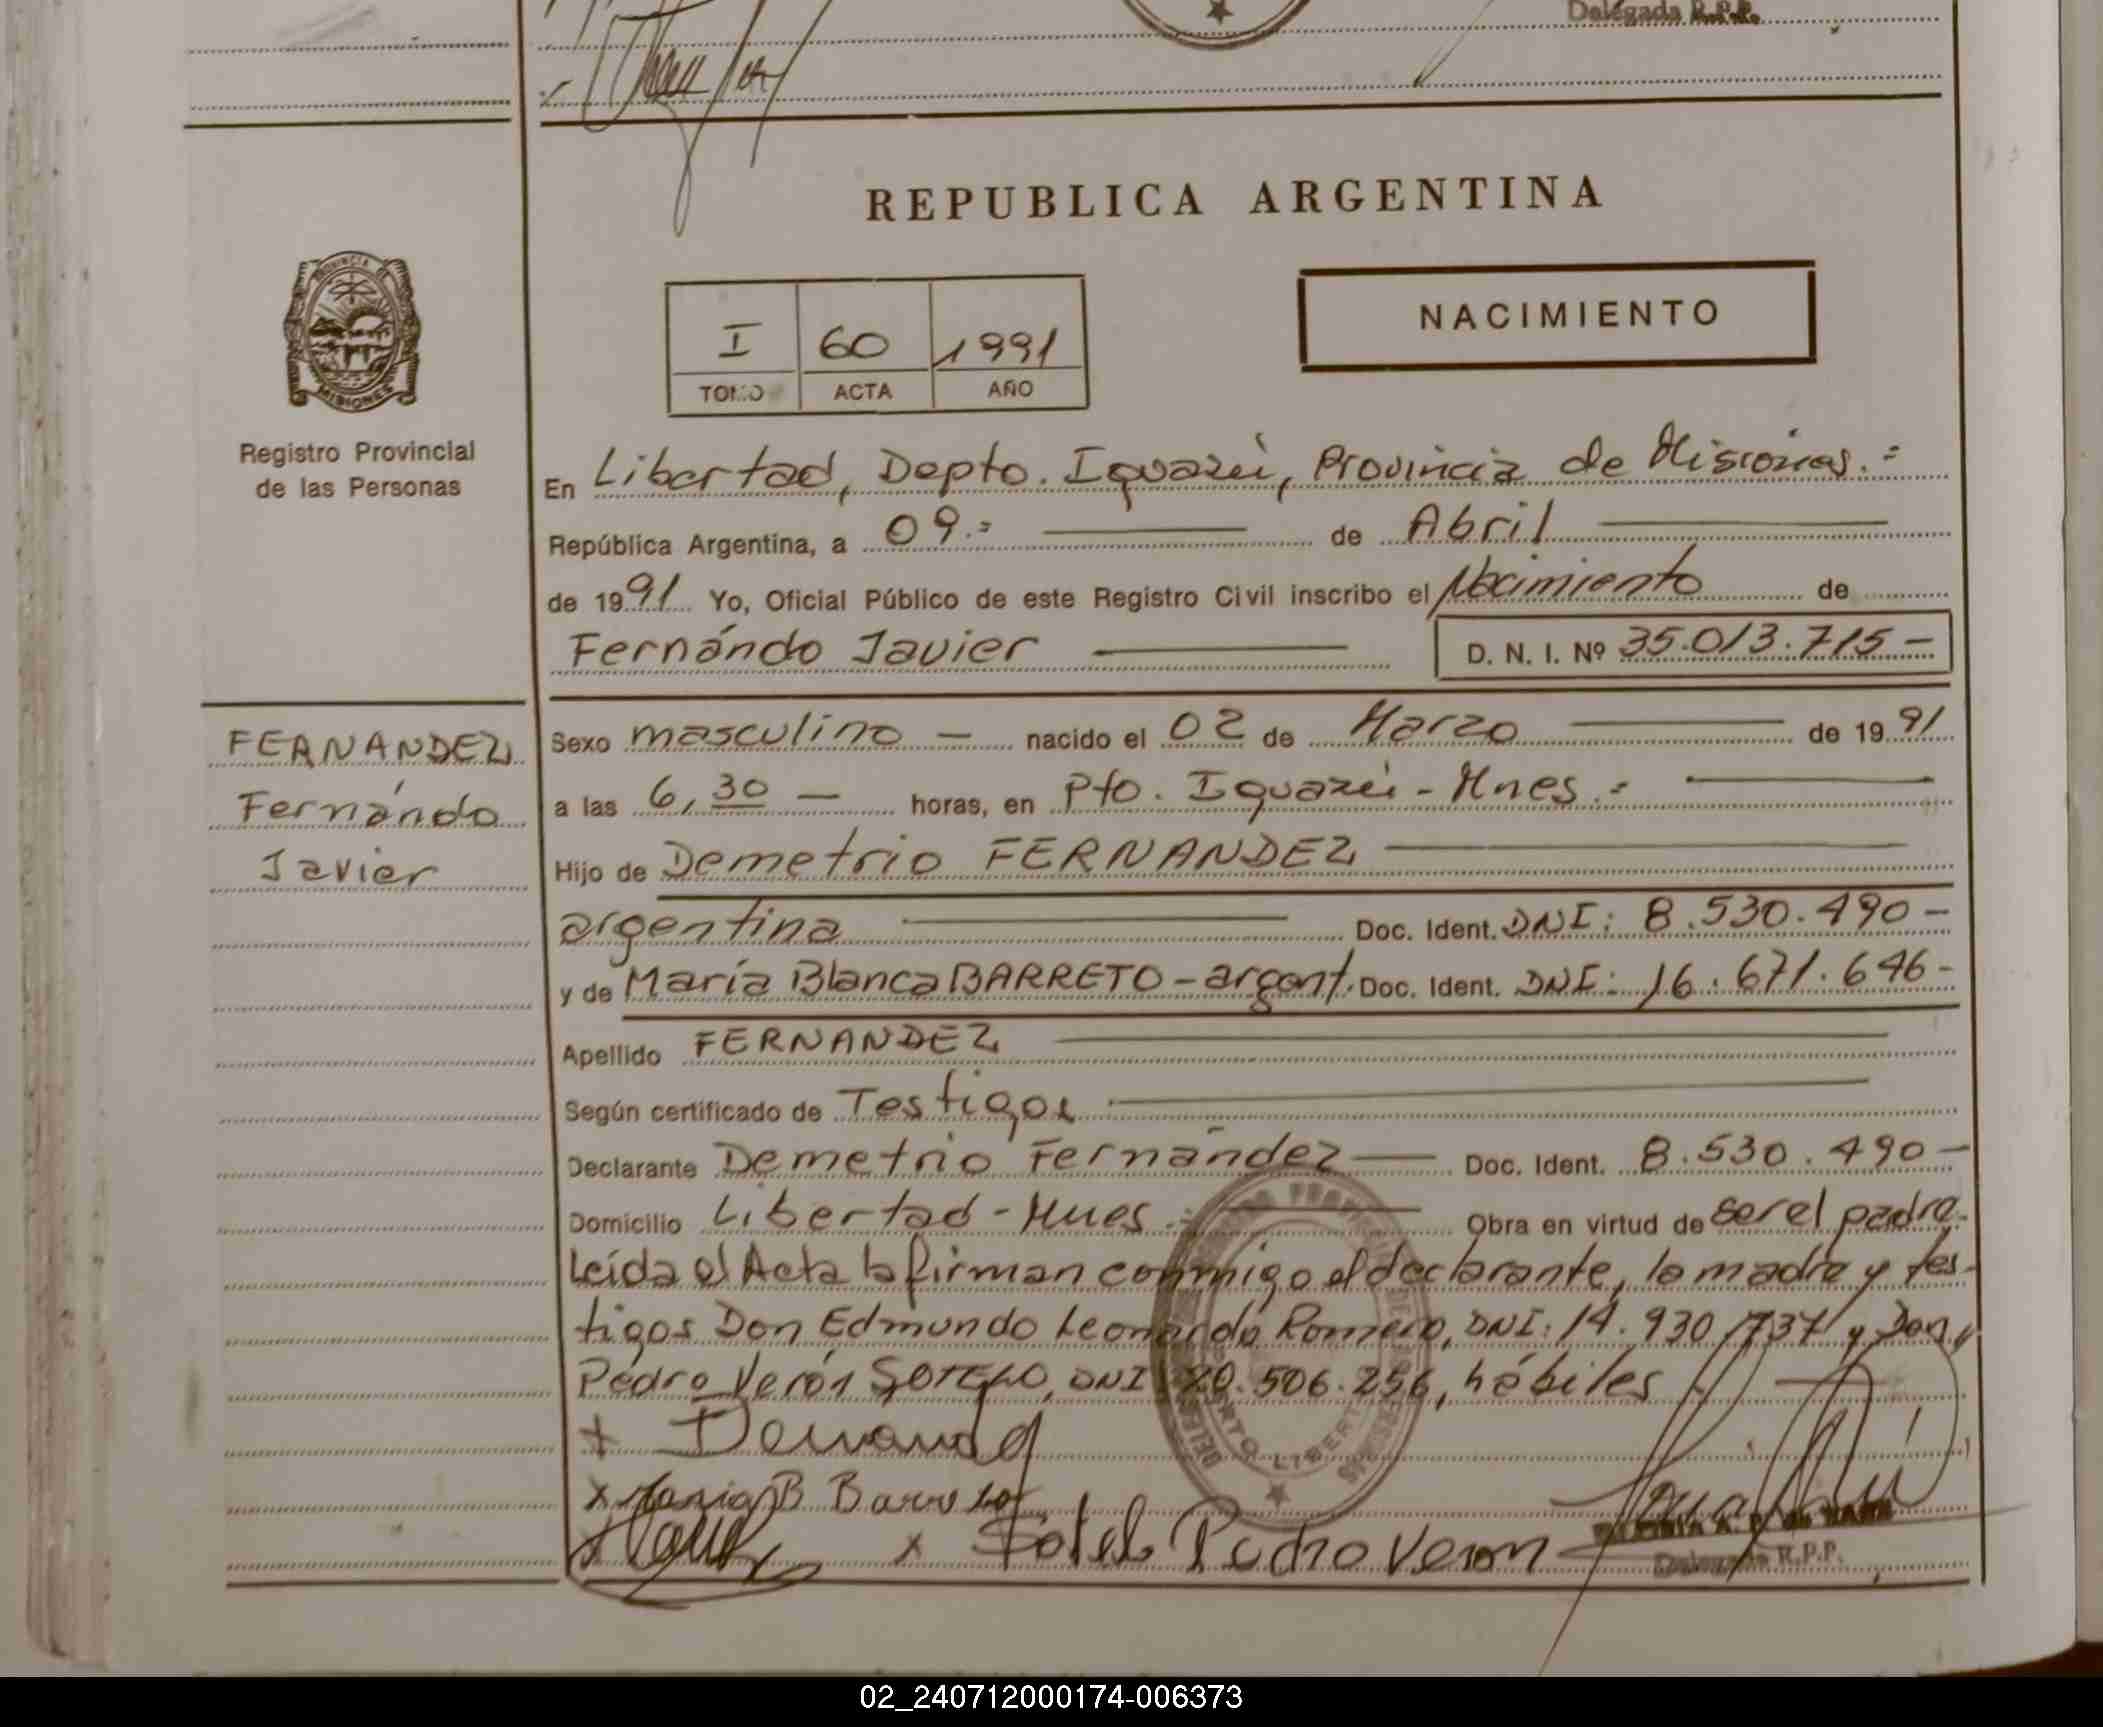 Delegada R.P.P.
REPUBLICA ARGENTINA
PROVINCIA DE
MISIONES
Registro Provincial
de las Personas
I 60 1991
TOMO ACTA AÑO
NACIMIENTO
En Libertad, Depto. Iguazú, Provincia de Misiones.=
República Argentina, a 09.= de Abril
de 1991 Yo, Oficial Público de este Registro Civil inscribo el Nacimiento de
Fernándo Javier D. N. I. Nº 35.013.715-
FERNANDEZ
Fernándo
Javier
Sexo masculino - nacido el 02 de Marzo de 1991
a las 6,30 - horas, en Pto. Iguazú - Mnes.=
Hijo de Demetrio FERNANDEZ
argentina Doc. Ident. DNI: 8.530.490-
y de María Blanca BARRETO - argent. Doc. Ident. DNI: 16.671.646-
Apellido FERNANDEZ
Según certificado de Testigos
Declarante Demetrio Fernández Doc. Ident. 8.530.490-
Domicilio Libertad - Mnes. Obra en virtud de ser el padre.
Leída el Acta la firman conmigo el declarante, la madre y tes-
tigos Don Edmundo Leonardo Romero, DNI: 14.930.737 y Don
Pedro Verón SOTELO, DNI 20.506.256, hábiles
x
x Maria B Barreto
x Sotelo Pedro Veron
Delegada R.P.P.
02_240712000174-006373